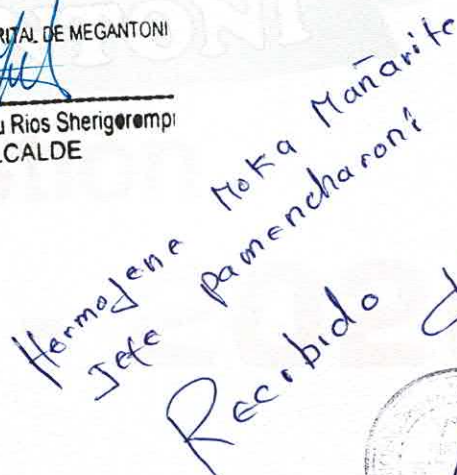 RITAL DE MEGANTONI
u Rios Sherigorompi
LCALDE
Hermogene Moka Mañarite
Jefe pamencharoni
Recibido